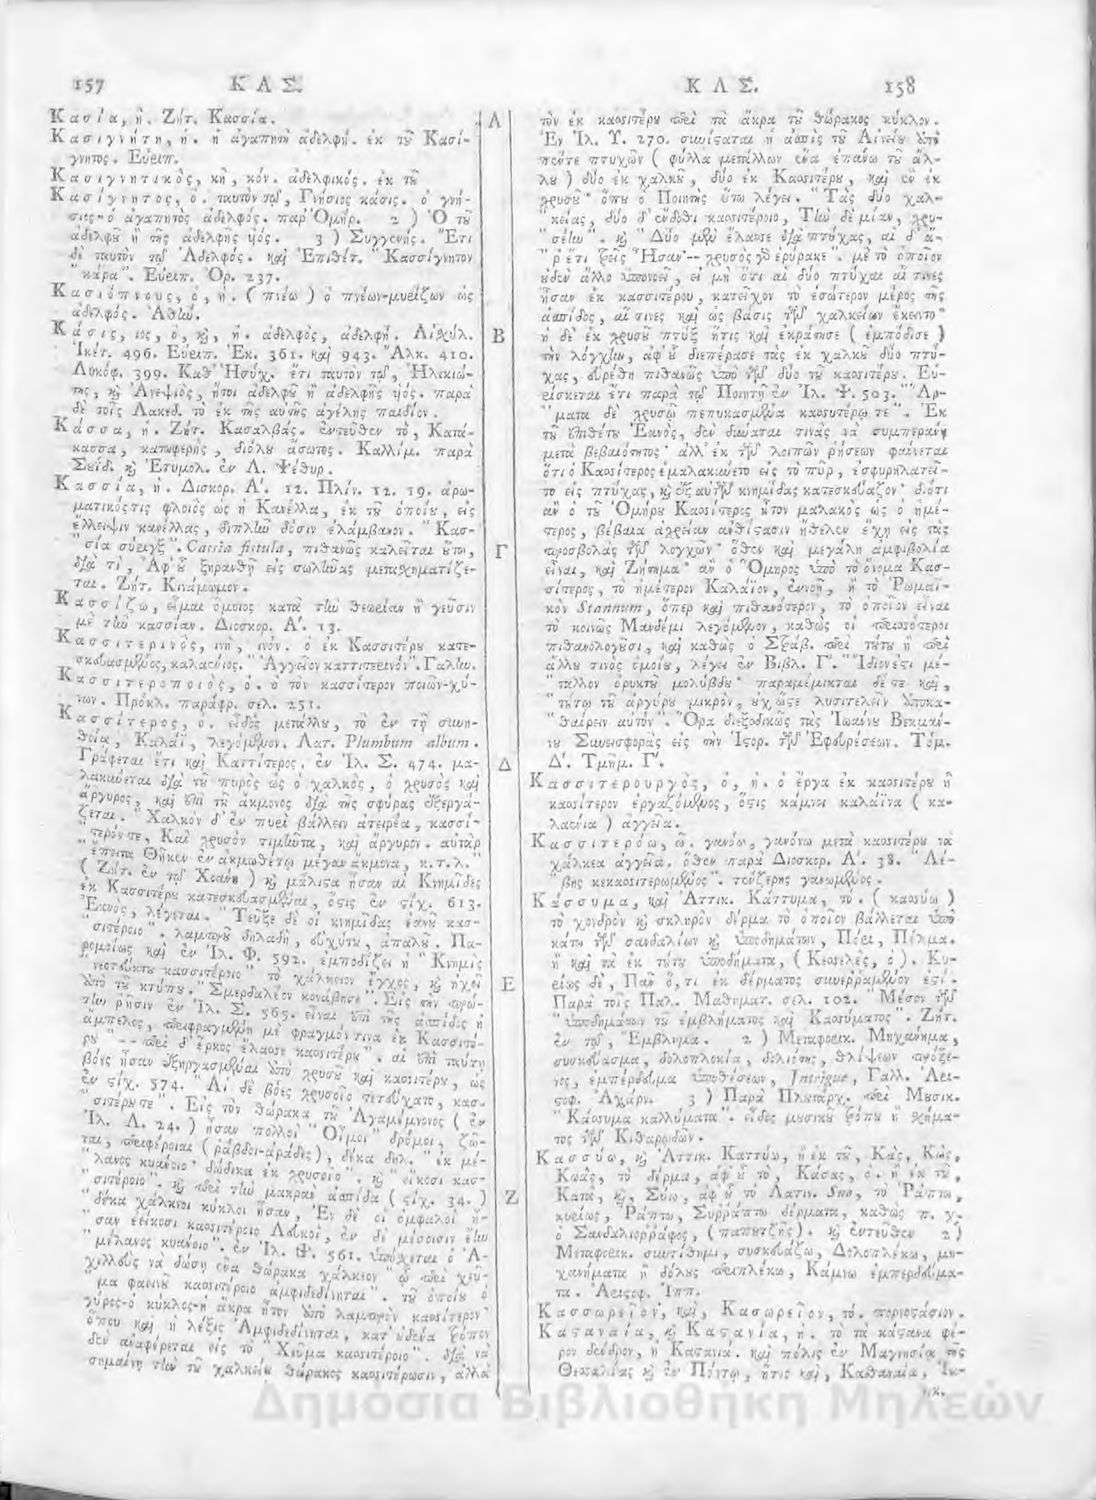 157 ΚΑΣ.
Κασία, ἡ. Ζήτ. Κασσία.
Κασιγνήτη, ἡ. ἡ ἀγαπητὴ ἀδελφή. ἐκ τȣ͂ Κασί-
γνητος. Εὐριπ.
Κασιγνητικὸς, κὴ, κόν. ἀδελφικός. ἐκ τȣ͂
Κασίγνητος, ὁ. ταυτὸν τῷ, Γνήσιος κάσις. ὁ γνή-
σιος-ὁ ἀγαπητὸς ἀδελφός. παρ' Ὁμήρ. 2) Ὁ τȣ͂
ἀδελφȣ͂ ἢ τῆς ἀδελφῆς υἱός. 3) Συγγενής. Ἔτι
δὲ ταυτὸν τῷ Ἀδελφός. καὶ Ἐπιθέτ. "Κασσίγνητον
"κάρα". Εὐριπ. Ὀρ. 237.
Κασιόπνους, ὁ, ἡ. (πνέω) ὁ πνέων-μυρίζων ὡς
ἀδελφός. Ἀθήν.
Κάσις, ιος, ὁ, καὶ, ἡ. ἀδελφὸς, ἀδελφή. Αἰσχύλ.
Ἱκέτ. 496. Εὐριπ. Ἑκ. 361. καὶ 943. Ἄλκ. 410.
Λυκόφ. 399. Καθ' Ἡσύχ. ἔτι ταυτὸν τῷ, Ἡλικιώ-
της, καὶ Ἀνεψιὸς, ἤτοι ἀδελφȣ͂ ἢ ἀδελφῆς υἱός. παρὰ
δὲ τοῖς Λακεδ. τὸ ἐκ τῆς αὐτῆς ἀγέλης παιδίον.
Κάσσα, ἡ. Ζήτ. Κασαλβάς. ἐντεῦθεν τὸ, Κατά-
κασσα, κατωφερὴς, διόλȣ ἄσωτος. Καλλίμ. παρὰ
Σȣΐδ. καὶ Ἐτυμολ. ἐν Λ. Ψίθυρ.
Κασσία, ἡ. Διοσκορ. Α'. 12. Πλίν. 12. 19. ἀρω-
ματικός τις φλοιὸς ὡς ἡ Κανέλλα, ἐκ τȣ͂ ὁποίȣ, εἰς
ἔλλειψιν κανέλλας, διπλὴν δόσιν ἐλάμβανον. "Κασ-
"σία σύριγξ". Cassia fistula, πιθανῶς καλεῖται ȣ͂τω,
διὰ τὶ, Ἀφ' ȣ͂ ξηρανθῇ εἰς σωλῆνας μετασχηματίζε-
ται. Ζήτ. Κινάμωμον.
Κασσίζω, εἶμαι ὅμοιος κατὰ τὴν θεωρίαν ἢ γεῦσιν
μὲ τὴν κασσίαν. Διοσκορ. Α'. 13.
Κασσιτερινὸς, ινὴ, ινόν. ὁ ἐκ Κασσιτέρȣ κατε-
σκευασμένος, καλαένιος. "Ἀγγεῖον καττιτερινόν". Γαλην.
Κασσιτεροποιὸς, ὁ. ὁ τὸν κασσίτερον ποιῶν-χύ-
νων. Πρόκλ. παράφρ. σελ. 251.
Κασσίτερος, ὁ. εἶδος μετάλλȣ, τὸ ἐν τῇ συνη-
θείᾳ, Καλάϊ, λεγόμενον. Λατ. Plumbum album.
Γράφεται ἔτι καὶ Καττίτερος. ἐν Ἰλ. Σ. 474. μα-
λακώνεται διὰ τȣ͂ πυρὸς ὡς ὁ χαλκὸς, ὁ χρυσὸς καὶ
ἄργυρος, καὶ ἐπὶ τȣ͂ ἄκμονος διὰ τῆς σφύρας ἐξεργά-
ζεται. "Χαλκὸν δ' ἐν πυρὶ βάλλεν ἀτειρέα, κασσί-
"τερόν τε, Καὶ χρυσὸν τιμῆντα, καὶ ἄργυρον. αὐτὰρ
"ἔπειτα Θῆκεν ἐν ἀκμοθέτῳ μέγαν ἄκμονα, κ.τ.λ."
(Ζήτ. ἐν τῷ Χοάνη) καὶ μάλιστα ἦσαν αἱ Κνημῖδες
ἐκ Κασσιτέρȣ κατεσκευασμέναι, ὅστις ἐν στίχ. 613.
Ἑανὸς, λέγεται. "Τεῦξε δέ οἱ κνημῖδας ἑανȣ͂ κασ-
"σιτέροιο". λαμπρȣ͂ δηλαδὴ, εὐχύτȣ, ἁπαλȣ͂. Πα-
ρομοίως καὶ ἐν Ἰλ. Φ. 592. ἐμποδίζει ἡ "Κνημὶς
"νεοτεύκτȣ κασσιτέροιο" τὸ χάλκειον ἔγχος, καὶ ἠχεῖ
ὑπὸ τȣ͂ κτύπȣ. "Σμερδαλέον κονάβησε". Εἰς τὴν πρώ-
την ῥῆσιν ἐν Ἰλ. Σ. 565. εἶναι ἐπὶ τῆς ἀσπίδος ἡ
ἄμπελος, περιφραγμένη μὲ φραγμόν τινα ἐκ Κασσιτέ-
ρȣ "-- περὶ δ' ἕρκος ἔλασσε κασσιτέρȣ". αἱ ἐπὶ ταύτῃ
βόες ἦσαν ἐξηργασμέναι ὑπὸ χρυσȣ͂ καὶ κασσιτέρȣ, ὡς
ἐν στίχ. 574. "Αἱ δὲ βόες χρυσοῖο τετεύχατο, κασ-
"σιτέρȣ τε". Εἰς τὸν θώρακα τȣ͂ Ἀγαμέμνονος (ἐν
Ἰλ. Λ. 24.) ἦσαν πολλοὶ "Οἶμοι" δρόμοι, ζῶ-
ται, περιφέρειαι (ῥάβδοι-ἀράδες), δέκα δηλ. "ἐκ μέ-
"λανος κυάνοιο" δώδεκα ἐκ χρυσοῖο". καὶ "εἴκοσι κασ-
"σιτέροιο". καὶ περὶ τὴν μακρὰν ἀσπίδα (στίχ. 34.)
"δέκα χάλκεοι κύκλοι ἦσαν, Ἐν δέ οἱ ὀμφαλοὶ ἦ-
"σαν ἐείκοσι κασσιτέροιο Λευκοὶ, ἐν δὲ μέσοισιν ἔην
"μέλανος κυάνοιο". ἐν Ἰλ. Ψ. 561. ὑπόσχεται ὁ Ἀ-
χιλλεὺς νὰ δώσῃ ἕνα θώρακα χάλκεον "ᾧ πέρι χεῦ-
"μα φαεινȣ͂ κασσιτέροιο ἀμφιδεδίνηται". τȣ͂ ὁποίȣ ὁ
γύρος-ὁ κύκλος-ἡ ἄκρα ἦτον ὑπὸ λαμπρὸν κασσίτερον
ὅπου καὶ ἡ λέξις Ἀμφιδεδίνηται, κατ' ȣ̓δένα τρόπον
δὲν ἀναφέρεται εἰς τὸ "Χεῦμα κασσιτέροιο". διὰ νὰ
σημαίνῃ τὴν τȣ͂ χαλκείȣ θώρακος κασσιτέρωσιν, ἀλλὰ
Α
Β
Γ
Δ
Ε
Ζ
ΚΑΣ. 158
τὸν ἐκ κασσιτέρȣ περὶ τὰ ἄκρα τȣ͂ θώρακος κύκλον.
Ἐν Ἰλ. Υ. 270. συνίσταται ἡ ἀσπὶς τȣ͂ Αἰνείȣ ὑπὸ
πέντε πτυχῶν (φύλλα μετάλλων ἕνα ἐπάνω τȣ͂ ἄλ-
λȣ) δύο ἐκ χαλκȣ͂, δύο ἐκ Κασσιτέρȣ, καὶ ἓν ἐκ
χρυσȣ͂ ὅπȣ ὁ Ποιητὴς ȣ͂τω λέγει. "Τὰς δύο χαλ-
"κείας, δύο δ' ἔνδοθι κασσιτέροιο, Τὴν δὲ μίαν, χρυ-
"σέην". καὶ "Δύο μὲν ἔλασσε διὰ πτύχας, αἱ δ' ἄ-
"ρ' ἔτι τρεῖς Ἦσαν -- χρυσὸς γὰρ ἐρύρακε". μὲ τὸ ὁποῖον
ȣ̓δὲν ἄλλο ὑπονοεῖ, εἰ μὴ ὅτι αἱ δύο πτύχαι αἵ τινες
ἦσαν ἐκ κασσιτέρου, κατεῖχον τὸ ἐσώτερον μέρος τῆς
ἀσπίδος, αἵ τινες καὶ ὡς βάσις τῶν χαλκείων ἔκειντο
ἡ δὲ ἐκ χρυσȣ͂ πτὺξ ἥτις καὶ ἐκράτησε (ἐμπόδισε)
τὴν λόγχην, ἀφ' ȣ͂ διεπέρασε τὰς ἐκ χαλκȣ͂ δύο πτύ-
χας, εὑρέθη πιθανῶς ὑπὸ τῶν δύο τȣ͂ κασσιτέρȣ. Εὑ-
ρίσκεται ἔτι παρὰ τῷ Ποιητῇ ἐν Ἰλ. Ψ. 503. "Ἅρ-
"ματα δὲ χρυσῷ πεπυκασμένα κασσιτέρῳ τε". Ἐκ
τȣ͂ ἐπιθέτȣ Ἑανὸς, δὲν δύναται τινὰς νὰ συμπεράνῃ
μετὰ βεβαιότητος ἀλλ' ἐκ τῶν λοιπῶν ῥήσεων φαίνεται
ὅτι ὁ Κασσίτερος ἐμαλακώνετο εἰς τὸ πῦρ, ἐσφυρηλατεῖ-
το εἰς πτύχας, καὶ ἐξ αὐτῶν κνημῖδας κατεσκεύαζον διότι
ἂν ὁ τȣ͂ Ὁμήρȣ Κασσίτερος ἦτον μαλακὸς ὡς ὁ ἡμέ-
τερος, βέβαια ἀχρείαν ἀνθίστασιν ἤθελεν ἔχῃ εἰς τὰς
προσβολὰς τῶν λογχῶν ὅθεν καὶ μεγάλη ἀμφιβολία
εἶναι, καὶ Ζήτημα ἂν ὁ Ὅμηρος ὑπὸ τὸ ὄνομα Κασ-
σίτερος, τὸ ἡμέτερον Καλάϊον, ἐννοῇ, ἢ τὸ Ῥωμαϊ-
κὸν Stannum, ὅπερ καὶ πιθανότερον, τὸ ὁποῖον εἶναι
τὸ κοινῶς Μανδέμι λεγόμενον, καθὼς οἱ περισσότεροι
πιθανολογȣ͂σι, καὶ καθὼς ὁ Στράβ. περὶ τȣ́τȣ ἢ περὶ
ἄλλȣ τινὸς ὁμοίȣ, λέγει ἐν Βιβλ. Γ'. "Ἴδιον ἐστὶ μέ-
"ταλλον ὀρυκτȣ͂ μολύβδȣ παραμέμικται δέ τε καὶ,
"τȣ́τῳ τȣ͂ ἀργύρȣ μικρὸν, ȣ̓χ ὥστε λυσιτελεῖν ἀποκα-
"θαίρειν αὐτόν". Ὅρα διεξοδικῶς τὰς Ἰωάνȣ Βεκμάν-
νȣ Συνεισφορὰς εἰς τὴν Ἱστορ. τῶν Ἐφευρέσεων. Τόμ.
Δ'. Τμῆμ. Γ'.
Κασσιτερουργὸς, ὁ, ἡ. ὁ ἔργα ἐκ κασσιτέρȣ ἢ
κασσίτερον ἐργαζόμενος, ὅστις κάμνει καλάϊνα (κα-
λαένια) ἀγγεῖα.
Κασσιτερόω, ῶ. γανόω, γανόνω μετὰ κασσιτέρȣ τὰ
χάλκεα ἀγγεῖα. ὅθεν παρὰ Διοσκορ. Α'. 38. "Λέ-
"βης κεκασσιτερωμένος". τέντζερης γανωμένος.
Κάσσυμα, καὶ Ἀττικ. Κάττυμα, τό. (κασσύω)
τὸ χονδρὸν καὶ σκληρὸν δέρμα τὸ ὁποῖον βάλλεται ὑπὸ
κάτω τῶν σανδαλίων καὶ ὑποδημάτων, Πέτσι, Πέλμα.
ἢ καὶ τὰ ἐκ τȣ́τȣ ὑποδήματα, (Κεσελὲς, ὁ). Κυ-
ρίως δὲ, Πᾶν ὅ,τι ἐκ δέρματος συνερραμμένον ἐστί.
Παρὰ τοῖς Παλ. Μαθηματ. σελ. 102. "Μέσον τῶν
"ὑποδημάτων τȣ͂ ἐμβλήματος καὶ Κασσύματος". Ζήτ.
ἐν τῷ, Ἔμβλημα. 2) Μεταφορικ. Μηχάνημα,
συσκεύασμα, δολοπλοκία, δολιότης, θλίψεων πρόξε-
νος, ἐμπέρδευμα ὑποθέσεων, Intrigue, Γαλλ. Ἀρι-
στοφ. Ἀχάρν. 3) Παρὰ Πλȣτάρχ. περὶ Μȣσικ.
"Κάσσυμα καλλύματα". εἶδος μȣσικȣ͂ τρόπȣ ἢ σχήμα-
τος τῶν Κιθαρῳδῶν.
Κασσύω, καὶ Ἀττικ. Καττύω, ἢ ἐκ τȣ͂, Κὰς, Κῶς,
Κωὰς, τὸ δέρμα, ἀφ' ȣ͂ τὸ, Κάσας, ὁ. ἢ ἐκ τȣ͂,
Κατὰ, καὶ, Σύω, ἀφ' ȣ͂ τὸ Λατιν. Suo, τὸ Ῥάπτω,
κυρίως, Ῥάπτω, Συρράπτω δέρματα, καθὼς π. χ.
ὁ Σανδαλιορράφος, (παπȣτζῆς). καὶ ἐντεῦθεν 2)
Μεταφορικ. συντίθημι, συσκευάζω, Δολοπλέκω, μη-
χανήματα ἢ δόλȣς περιπλέκω, Κάμνω ἐμπερδεύμα-
τα. Ἀριστοφ. Ἱππ.
Κασσωρεῖον, καὶ, Κασωρεῖον, τό. πορνοστάσιον.
Καστανία, καὶ Καστανέα, ἡ. τὸ τὰ κάστανα φέ-
ρον δένδρον, ἡ Καστανιά. καὶ πόλις ἐν Μαγνησίᾳ τῆς
Θεσσαλίας καὶ ἐν Πόντῳ, ἥτις καὶ, Κασθαναία, Ἰω-
νικ.
Δημόσια Βιβλιοθήκη Μηλεών